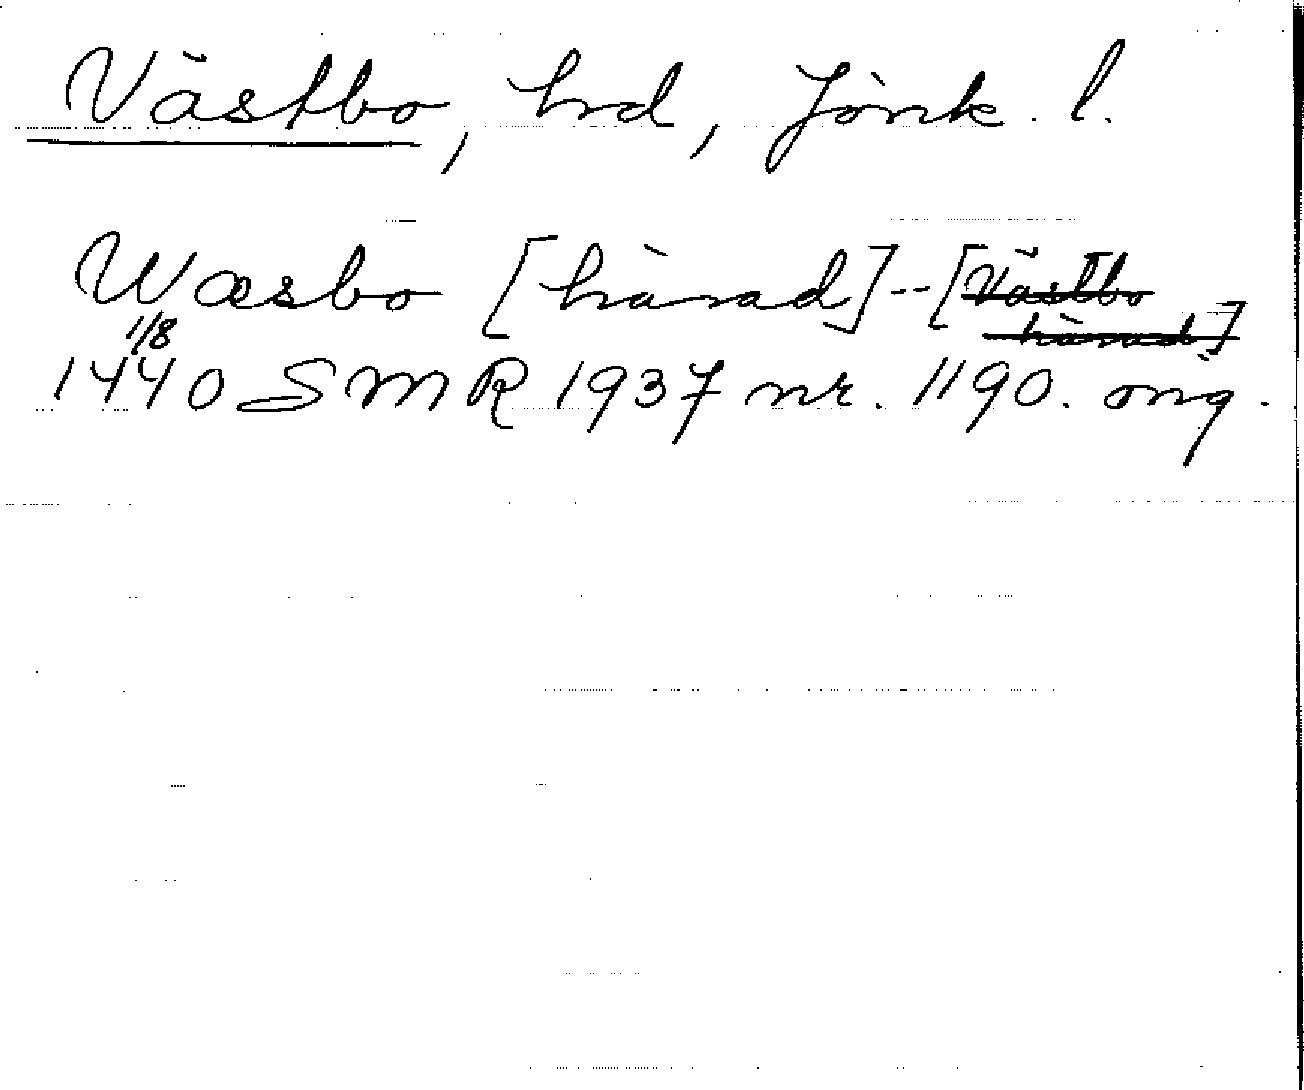 Västbo, hrd, Jönk. l.
Wæsbo [härad]--[Västbo
härad]
1/8
1440 SMR 1937 nr. 1190. orig.